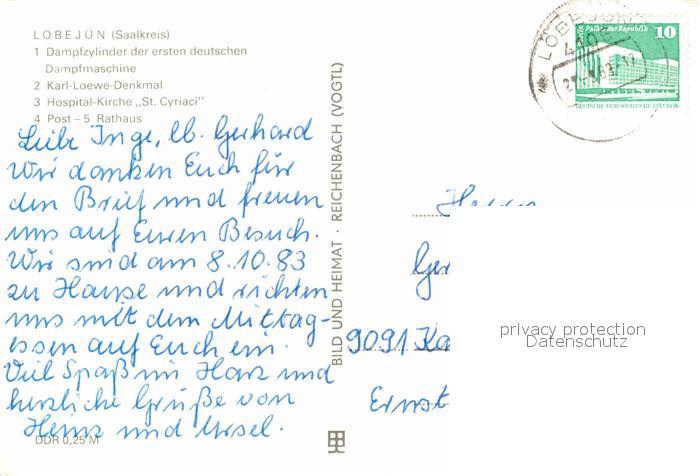 LÖBEJÜN (Saalkreis)
1 Dampfzylinder der ersten deutschen
Dampfmaschine
2 Karl-Loewe-Denkmal
3 Hospital-Kirche „St. Cyriaci"
4 Post – 5 Rathaus
Liebe Inge, lb. Gerhard
Wir danken Euch für
den Brief und freuen
uns auf Euren Besuch.
Wir sind am 8.10.83
zu Hause und richten
uns mit dem Mittag-
essen auf Euch ein.
Viel Spaß im Harz und
herzliche Grüße von
Heinz und Ursel.
DDR 0,25 M
BILD UND HEIMAT · REICHENBACH (VOGTL)
LÖBEJÜN
Palast der Republik
10
DEUTSCHE DEMOKRATISCHE REPUBLIK
Herrn
Ger
9091 Ka
Ernst
privacy protection
Datenschutz